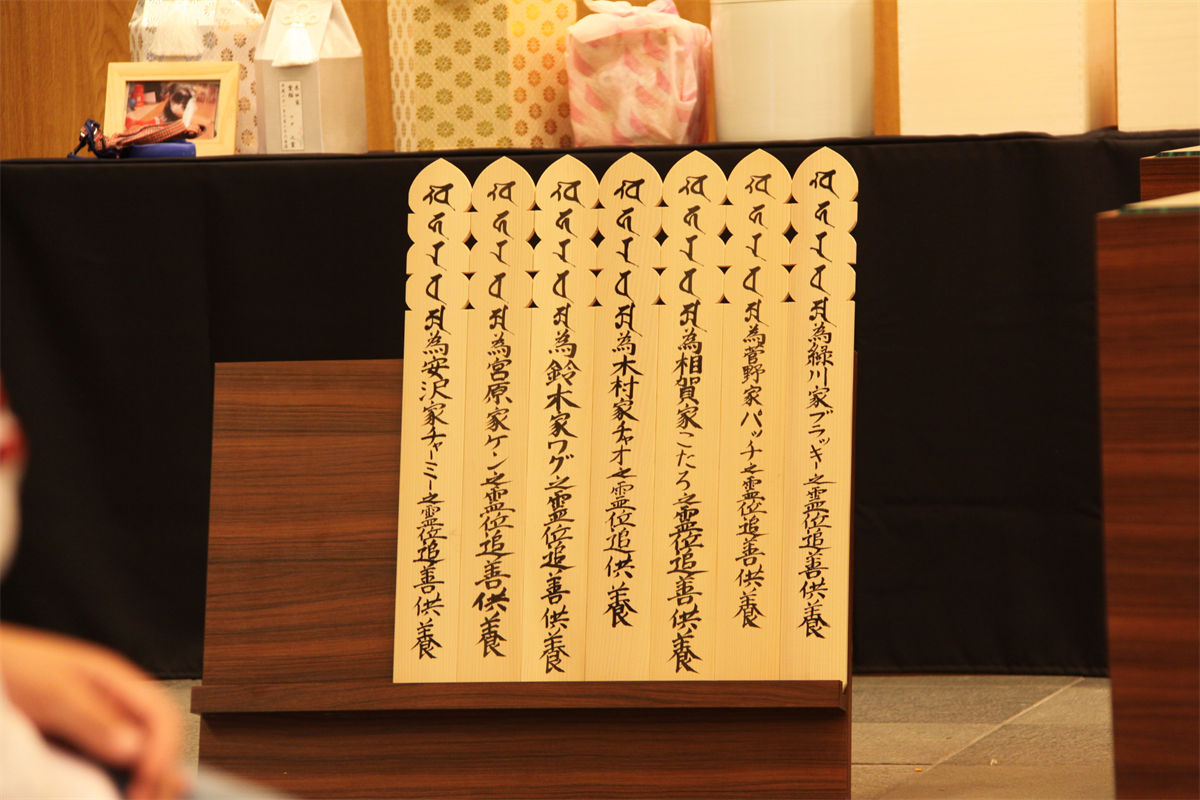 為緑川家ブラッキー之霊位追善供養
為菅野家パッチ之霊位追善供養
為相賀家こたろ之霊位追善供養
為木村家チャオ之霊位追善供養
為鈴木家ワグ之霊位追善供養
為宮原家ケン之霊位追善供養
為安沢家チャーミー之霊位追善供養